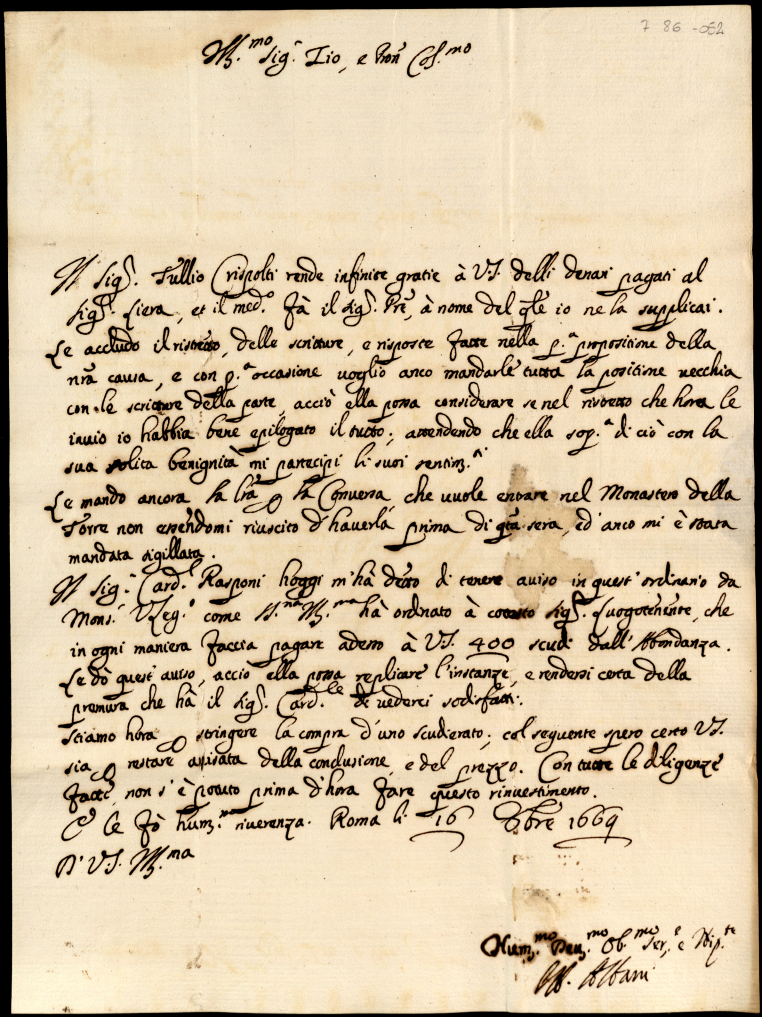 7 86 -052
Ill.mo Sig.r Zio, e Pron Col.mo
Il Sig.r Tullio Crispolti rende infinite gratie à V.S. delli denari pagati al
Sig.r Liera, et il med.o fà il Sig.r Pre, à nome del qle io ne la supplicai.
Le accludo il ristretto, delle scritture, e risposte fatte nella p.a propositione della
nra causa, e con p.a occasione voglio anco mandarle tutta la positione vecchia
con le scritture della parte, acciò ella possa considerare se nel ristretto che hora le
invio io habbia bene epilogato il tutto; attendendo che ella sop.a di ciò con la
sua solita benignità mi partecipi li suoi sentim.ti
Le mando ancora la lrà p la Conversa che vuole entrare nel Monastero della
Torre non essendomi riuscito d'haverla prima di qta sera, ed'anco mi è stata
mandata sigillata.
Il Sig.r Card.l Rasponi hoggi m'hà detto di tenere aviso in quest'ordinario da
Mons.r VLeg.o come S.na Ill.ma hà ordinato à cotesto Sig.r Luogotenente, che
in ogni maniera faccia pagare adesso à V.S. 400 scudi dall'Abondanza.
Le dò quest'aviso, acciò ella possa replicare l'instanze, e rendersi certa della
premura che hà il Sig.r Card.le di vederci sodisfatti.
Stiamo hora p stringere la compra d'uno scudierato; col seguente spero certo V.S.
sia p restare avisata della conclusione, e del prezzo. Con tutte le diligenze
fatte, non s'è potuto prima d'hora fare questo rinvestimento.
E le fò hum.ma riverenza. Roma li 16 Xbre 1669
D' V.S. Ill.ma
Hum.mo Dev.mo Ob.mo Ser.e e Nip.te
Albani